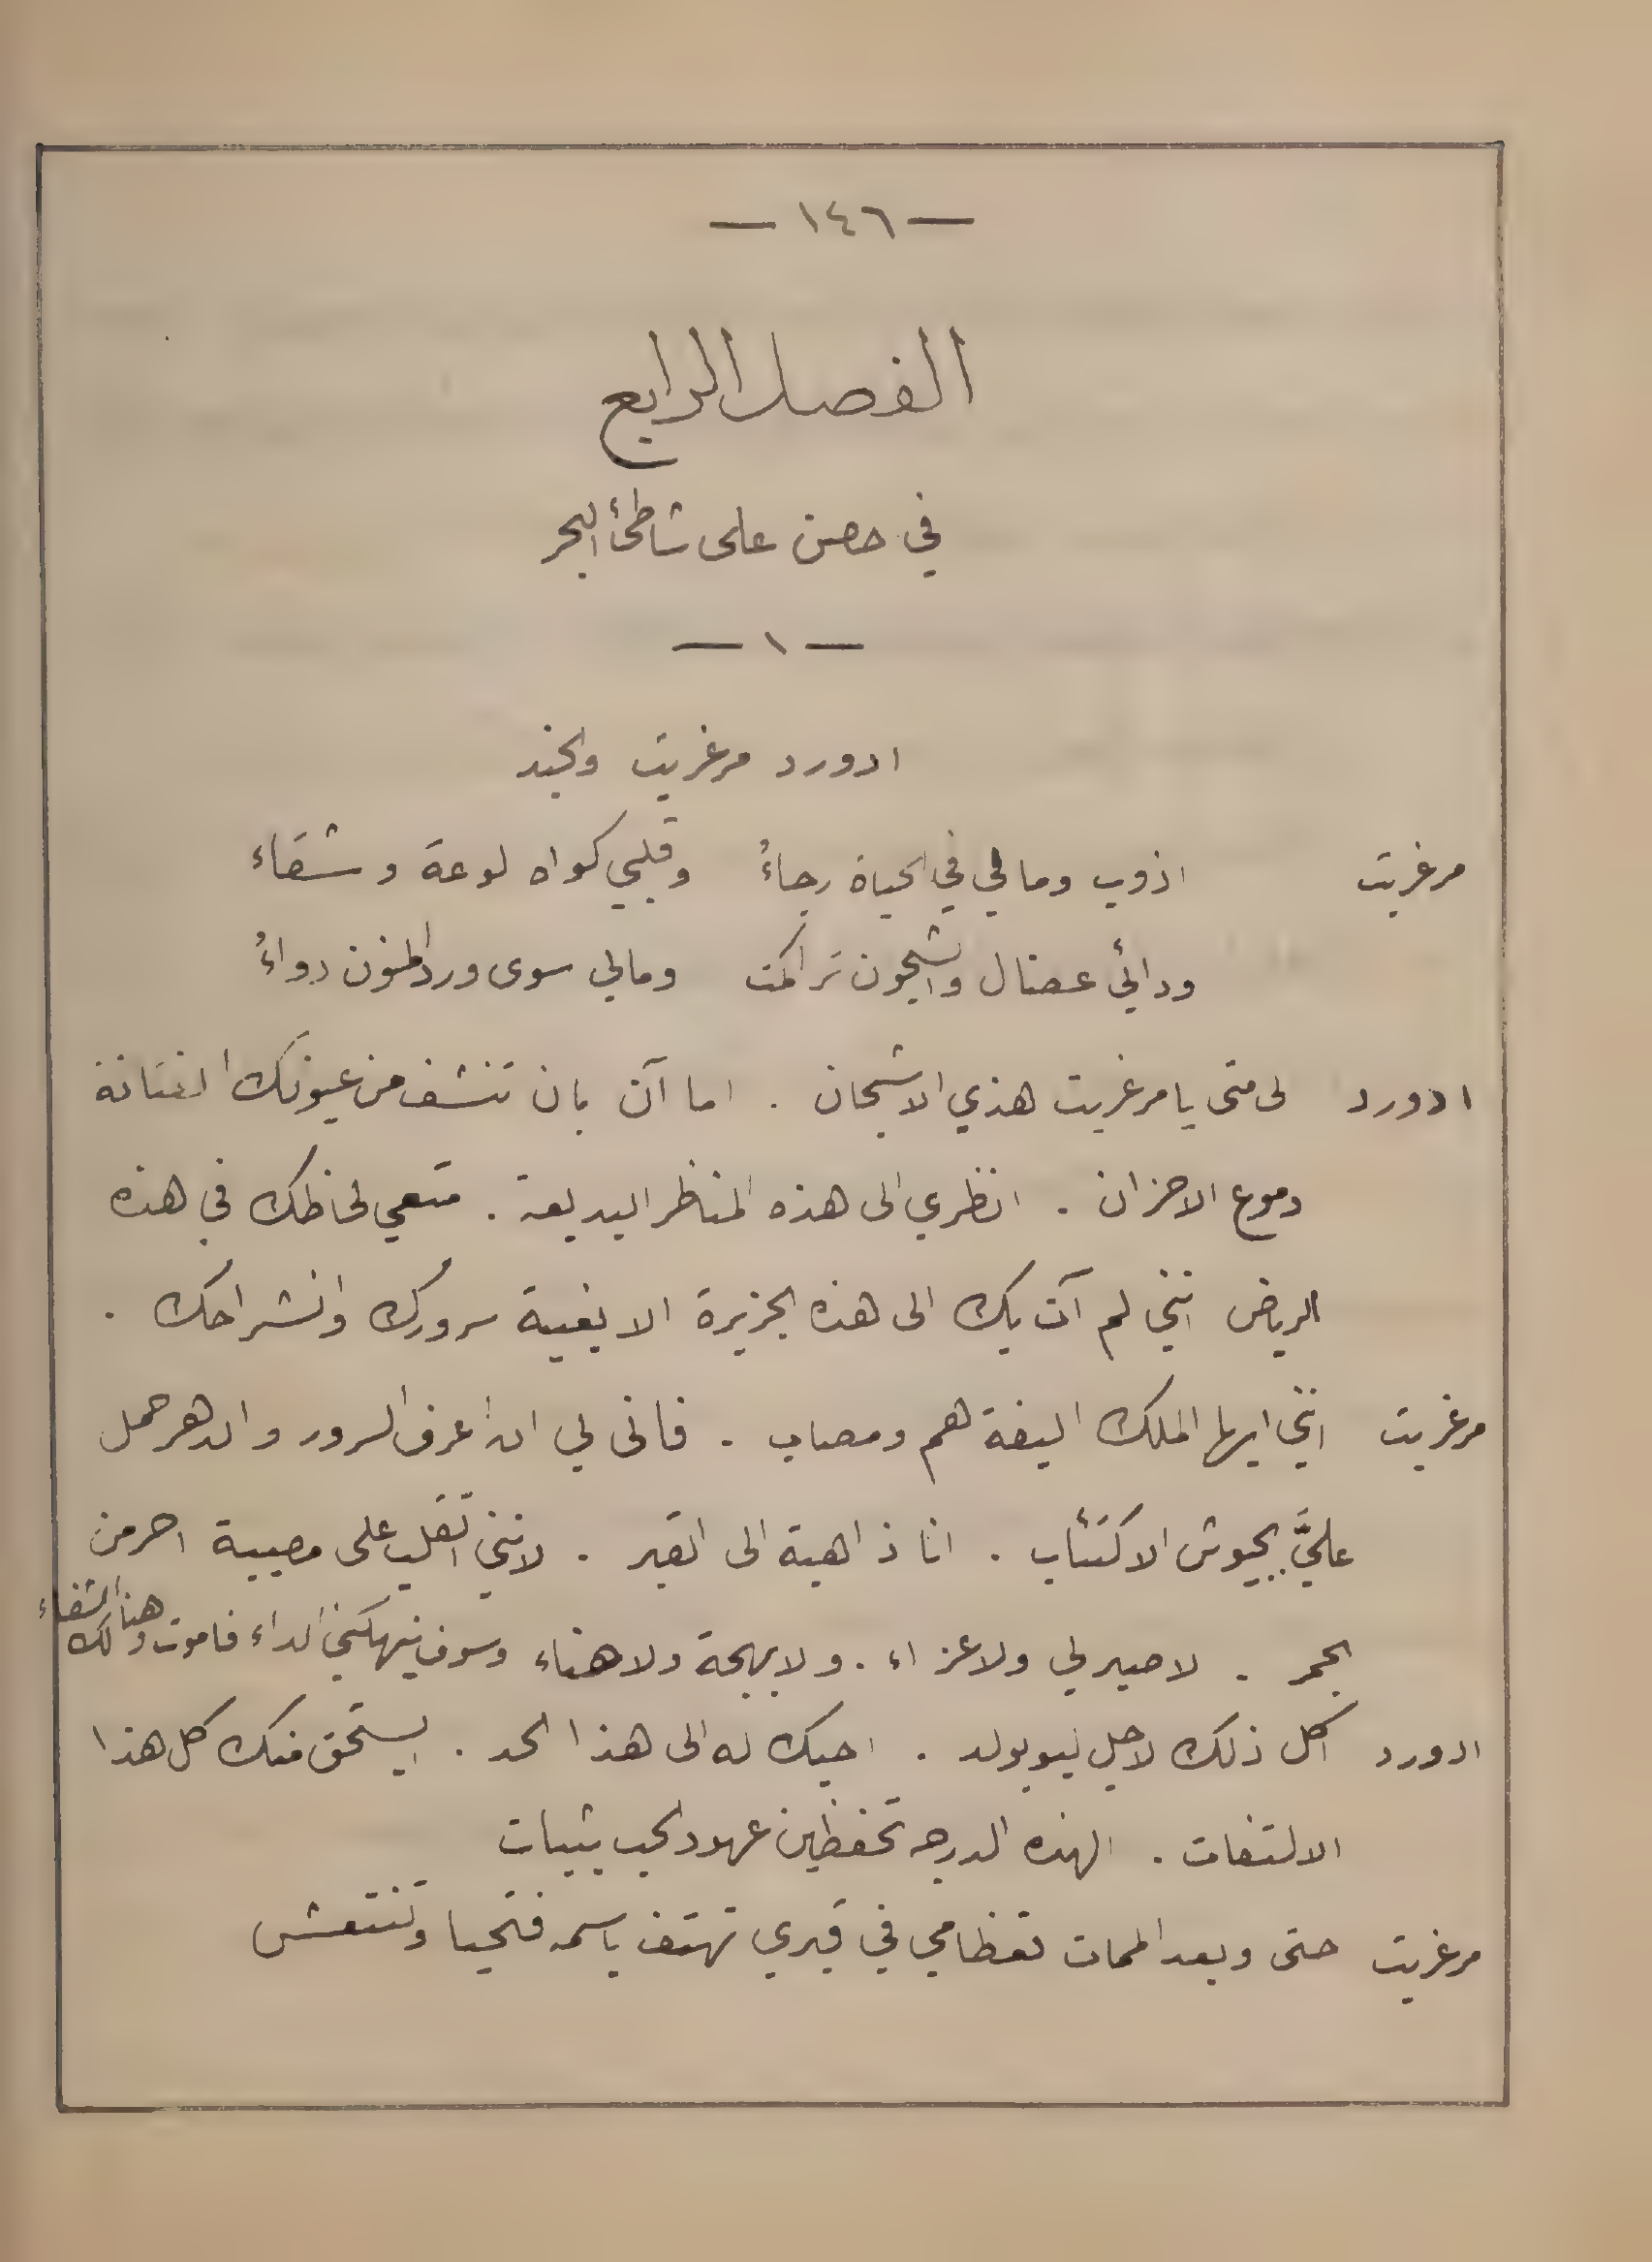 — ١٤٦ —
الفصل الرابع
في حصن على شاطئ البحر
— ١ —
ادورد مرغريت والجند
مرغريت اذوب ومالي في الحياة رجاءُ وقلبي كواه لوعة وشقاء
ودائي عضال والشجون تراكمت ومالي سوى ورد المنون دواءُ
ادورد لى متى يا مرغريت هذي الاشجان . اما آن بان تنشف من عيونك الفتانة
دموع الاحزان . انظري الى هذه المناظر البديعة . متعي لحاظك في هذه
الرياض انني لم آت بك الى هذه الجزيرة الا بغية سرورك وانشراحك .
مرغريت انني ايها الملك اليفة هم ومصاب . فانى لي ان اعرف السرور والدهر حمل
عليَّ بجيوش الاكتئاب . انا ذاهبة الى القبر . لانني اتقلب على مصيبة احر من
الجمر . لا صبر لي ولا عزاء . ولا بهجة ولا هناء وسوف ينهكني الداء فاموت وهنالك الشفاء
ادورد اكل ذلك لاجل ليوبولد . احبك له الى هذا الحد . ايستحق منك كل هذا
الالتفات . الهذه الدرجه تحفظين عهود الحب بثبات
مرغريت حتى وبعد الممات فعظامي في قبري تهتف باسمه فتحيا وتنتعش